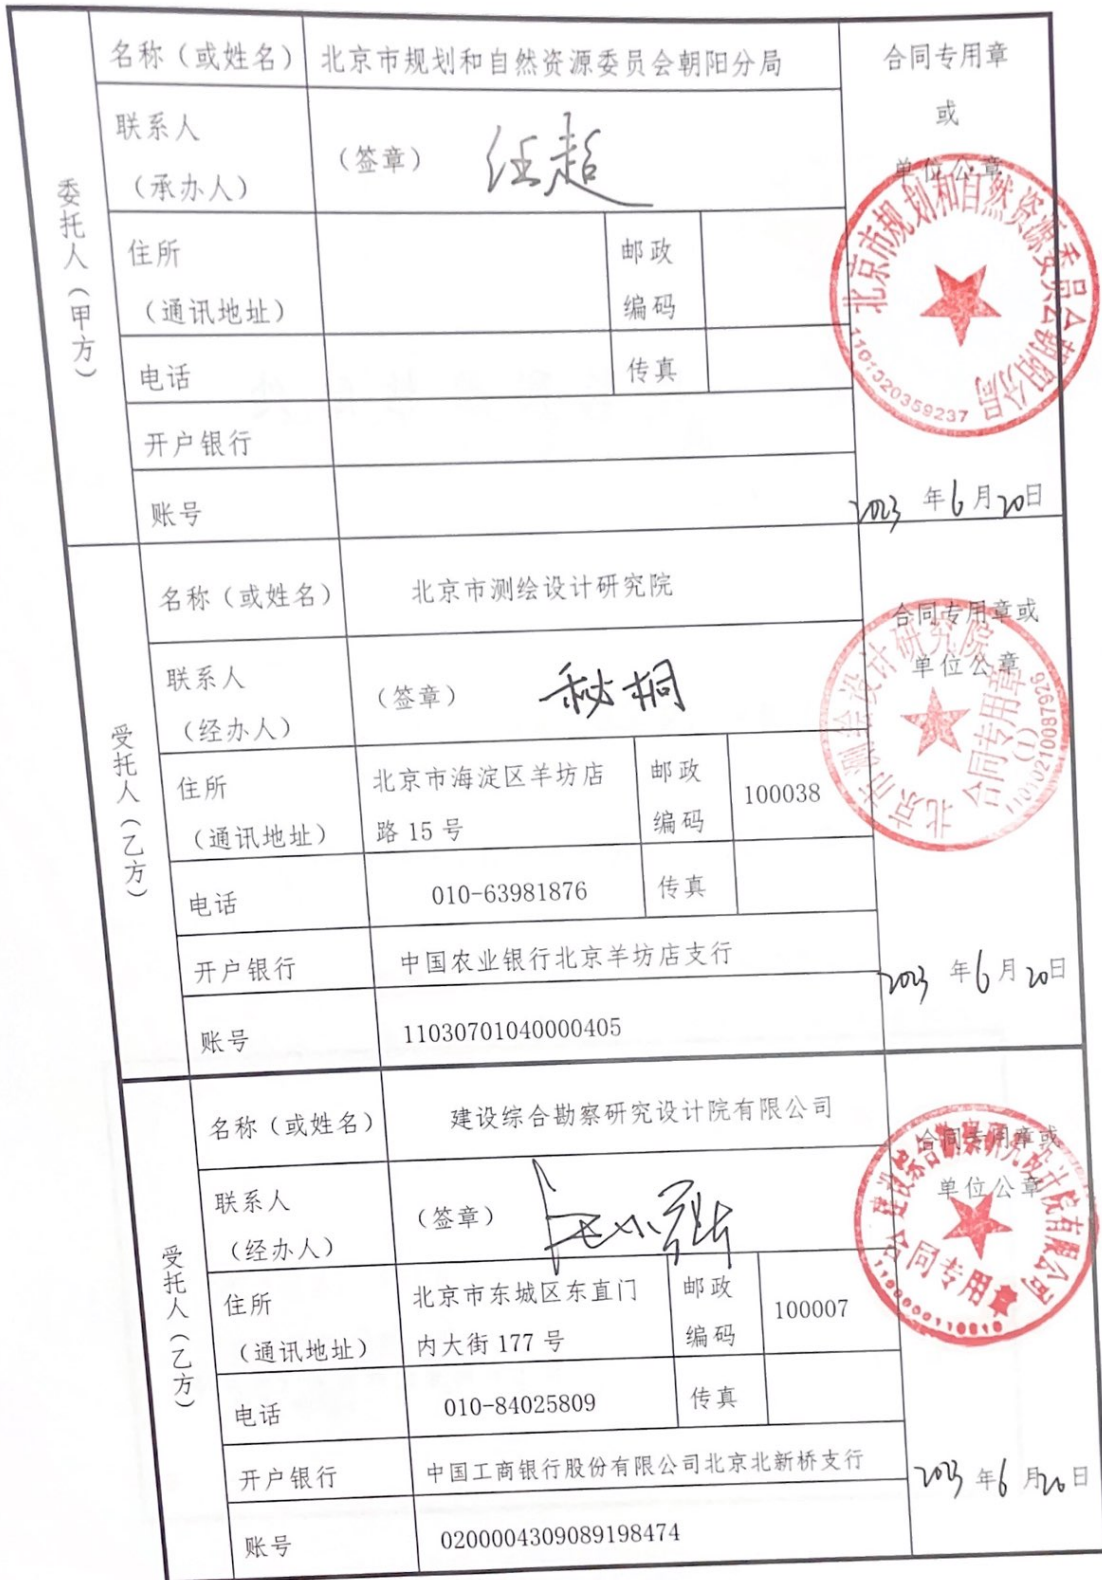 委托人（甲方）
名称（或姓名）
北京市规划和自然资源委员会朝阳分局
合同专用章
或
单位公章
联系人
（承办人）
（签章）
任超
住所
（通讯地址）
邮政
编码
电话
传真
开户银行
账号
北京市规划和自然资源委员会朝阳分局
1101320359237
2023 年6月20日
受托人（乙方）
名称（或姓名）
北京市测绘设计研究院
合同专用章或
单位公章
联系人
（经办人）
（签章）
秘桐
住所
（通讯地址）
北京市海淀区羊坊店
路 15 号
邮政
编码
100038
电话
010-63981876
传真
开户银行
中国农业银行北京羊坊店支行
账号
11030701040000405
北京市测绘设计研究院
合同专用章
(1)
2023 年6月20日
受托人（乙方）
名称（或姓名）
建设综合勘察研究设计院有限公司
合同专用章或
单位公章
联系人
（经办人）
（签章）
住所
（通讯地址）
北京市东城区东直门
内大街 177 号
邮政
编码
100007
电话
010-84025809
传真
开户银行
中国工商银行股份有限公司北京北新桥支行
账号
0200004309089198474
建设综合勘察研究设计院有限公司
合同专用章
2023 年6月20日